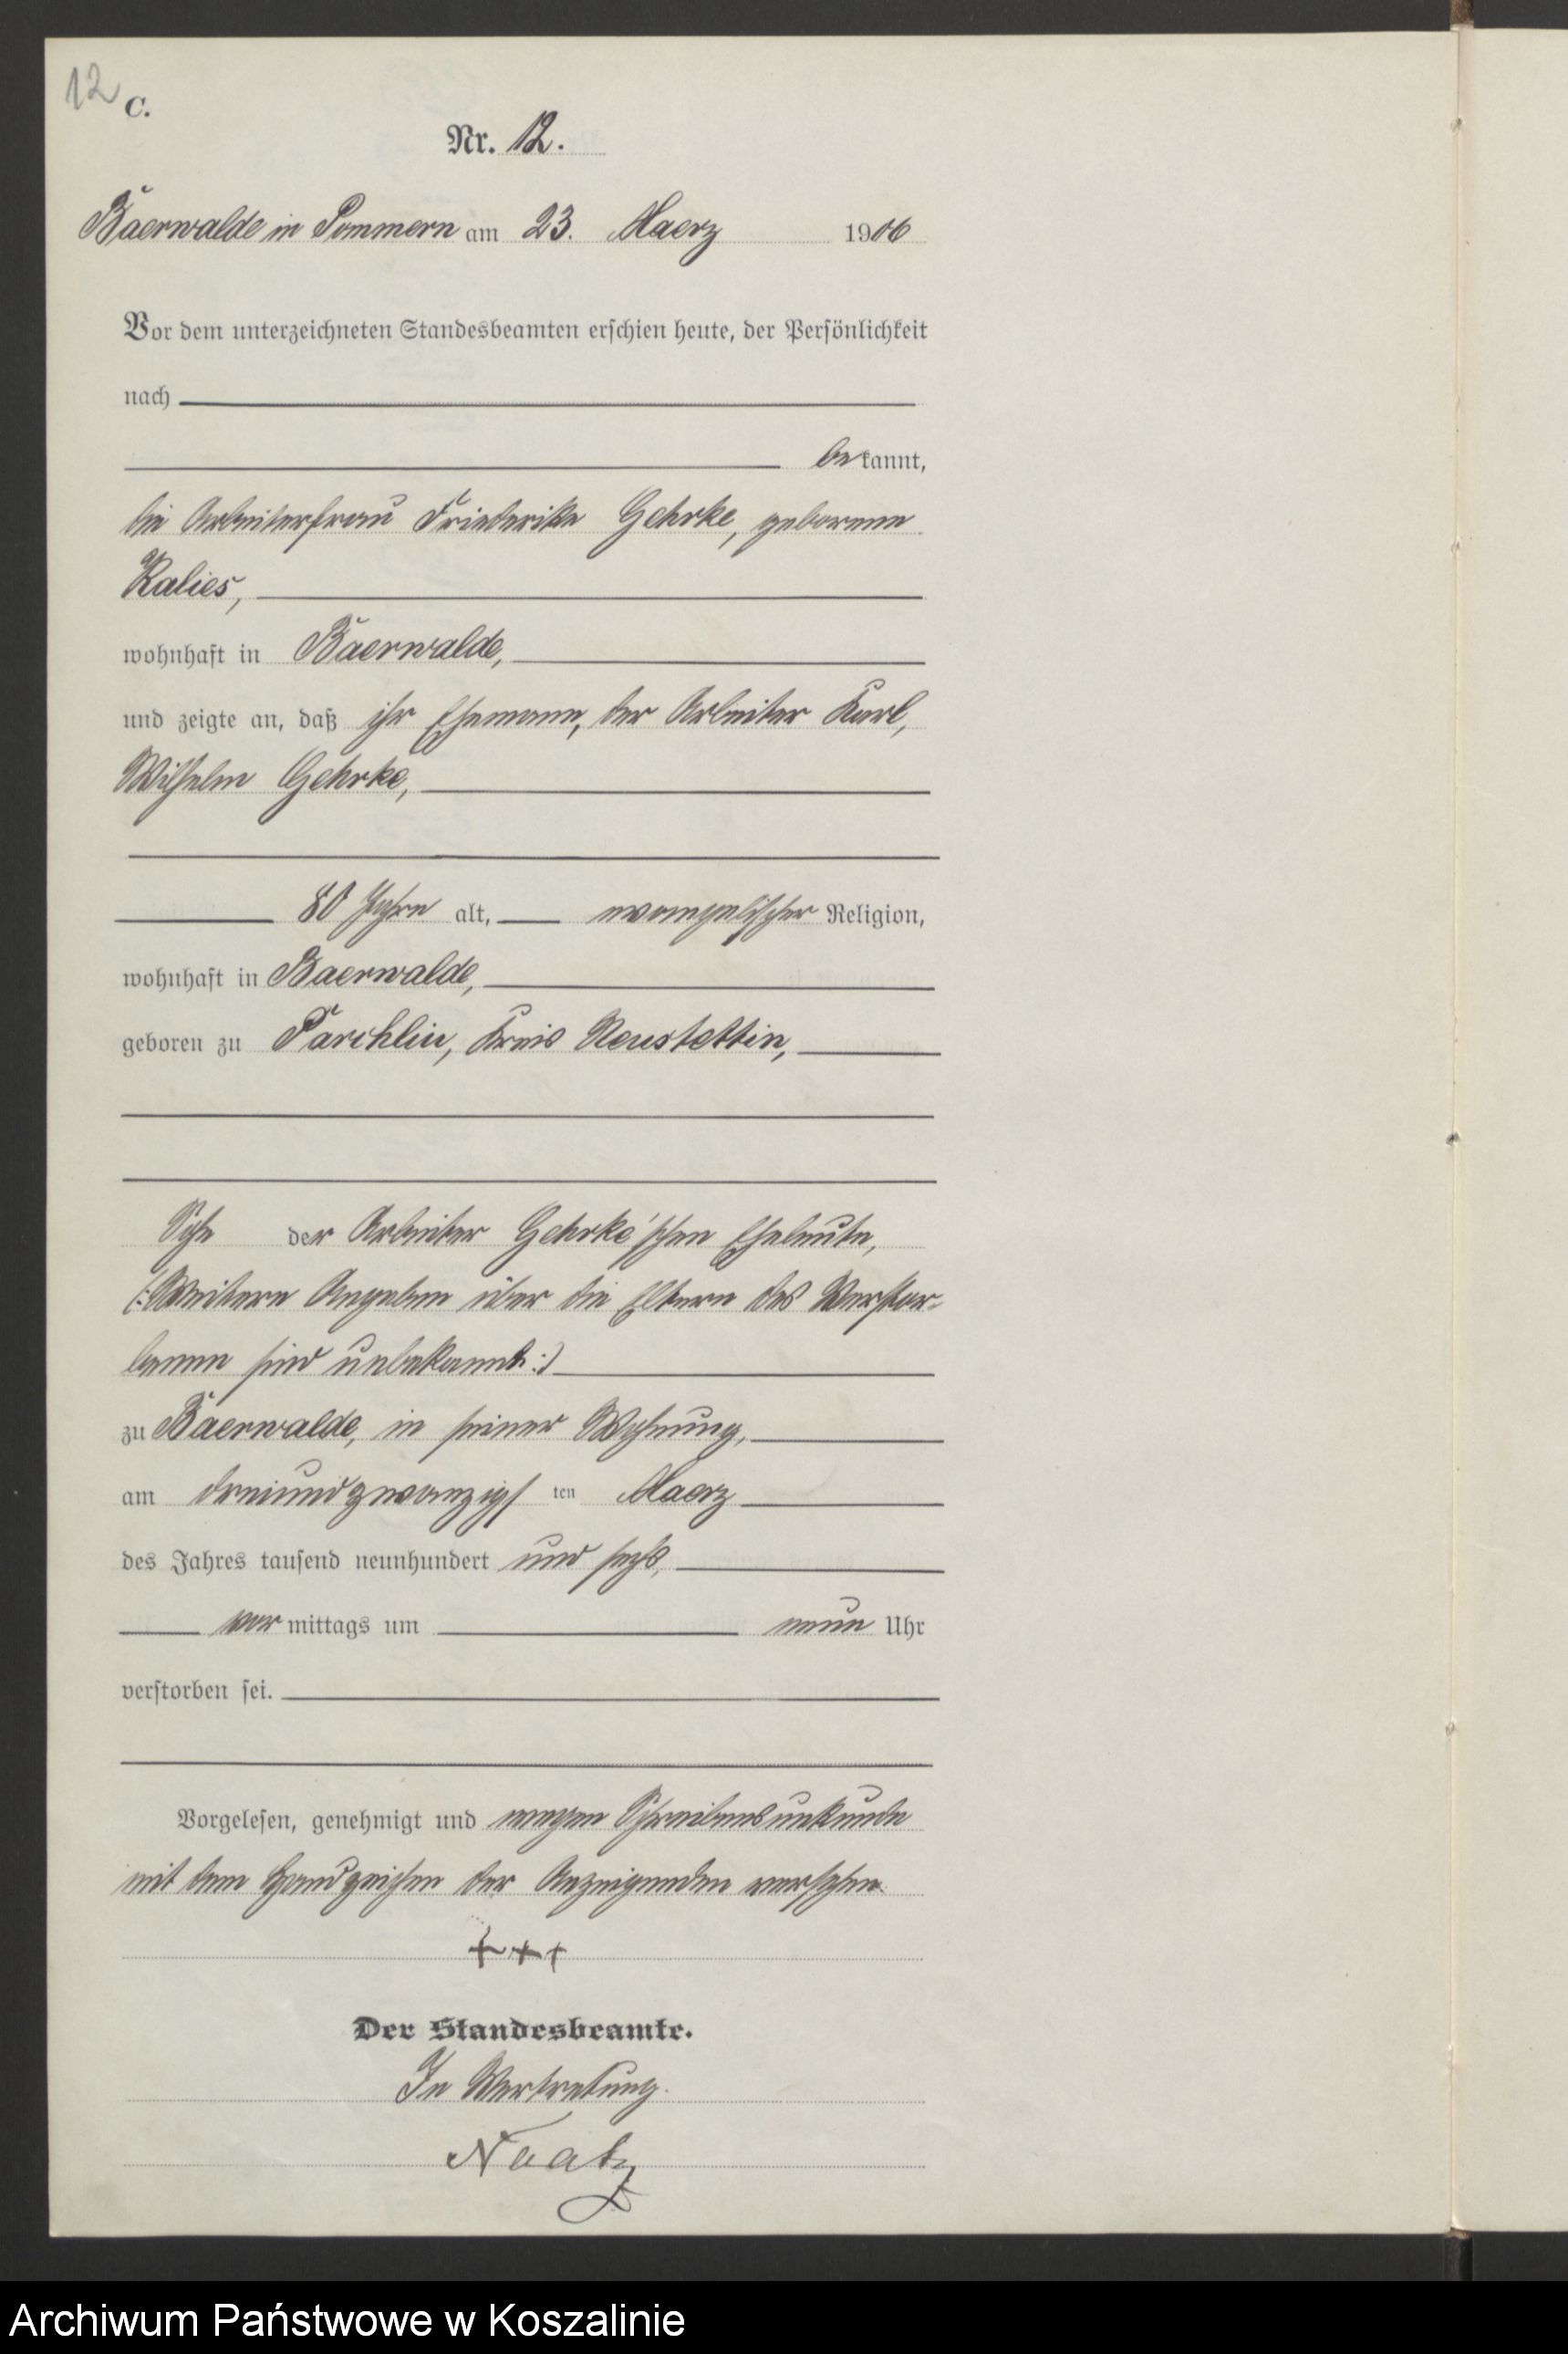 12
C.
Nr. 12.
Baerwalde in Pommern am 23. Maerz 1906
Vor dem unterzeichneten Standesbeamten erschien heute, der Persönlichkeit
nach
bekannt,
die Arbeiterfrau Friederike Gehrke, geborene
Kalies,
wohnhaft in Baerwalde,
und zeigte an, daß ihr Ehemann, der Arbeiter Karl,
Wilhelm Gehrke,
80 Jahre alt, evangelischer Religion,
wohnhaft in Baerwalde,
geboren zu Parchlin, Kreis Neustettin,
Sohn der Arbeiter Gehrke'schen Eheleute,
(:Weitere Angaben über die Eltern des Verstor-
benen sind unbekannt:)
zu Baerwalde, in seiner Wohnung,
am dreiundzwanzigsten Maerz
des Jahres tausend neunhundert und sechs,
vormittags um neun Uhr
verstorben sei.
Vorgelesen, genehmigt und wegen Schreibensunkunde
mit dem Handzeichen der Anzeigenden versehen.
+++
Der Standesbeamte.
In Vertretung.
Naatz
Archiwum Państwowe w Koszalinie